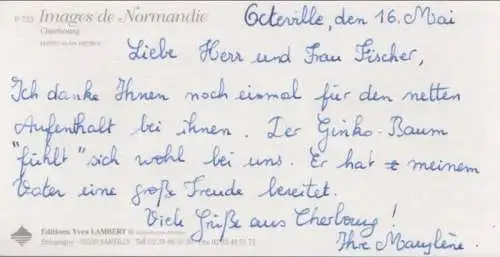 P 723 Images de Normandie
Cherbourg
Octeville, den 16. Mai
Liebe Herr und Frau Fischer,
Ich danke Ihnen noch einmal für den netten
Aufenthalt bei ihnen. Der Ginko-Baum
"fühlt" sich wohl bei uns. Er hat meinem
Vater eine große Freude bereitet.
Viele Grüße aus Cherbourg!
Ihre Marylène.
Éditions Yves LAMBERT